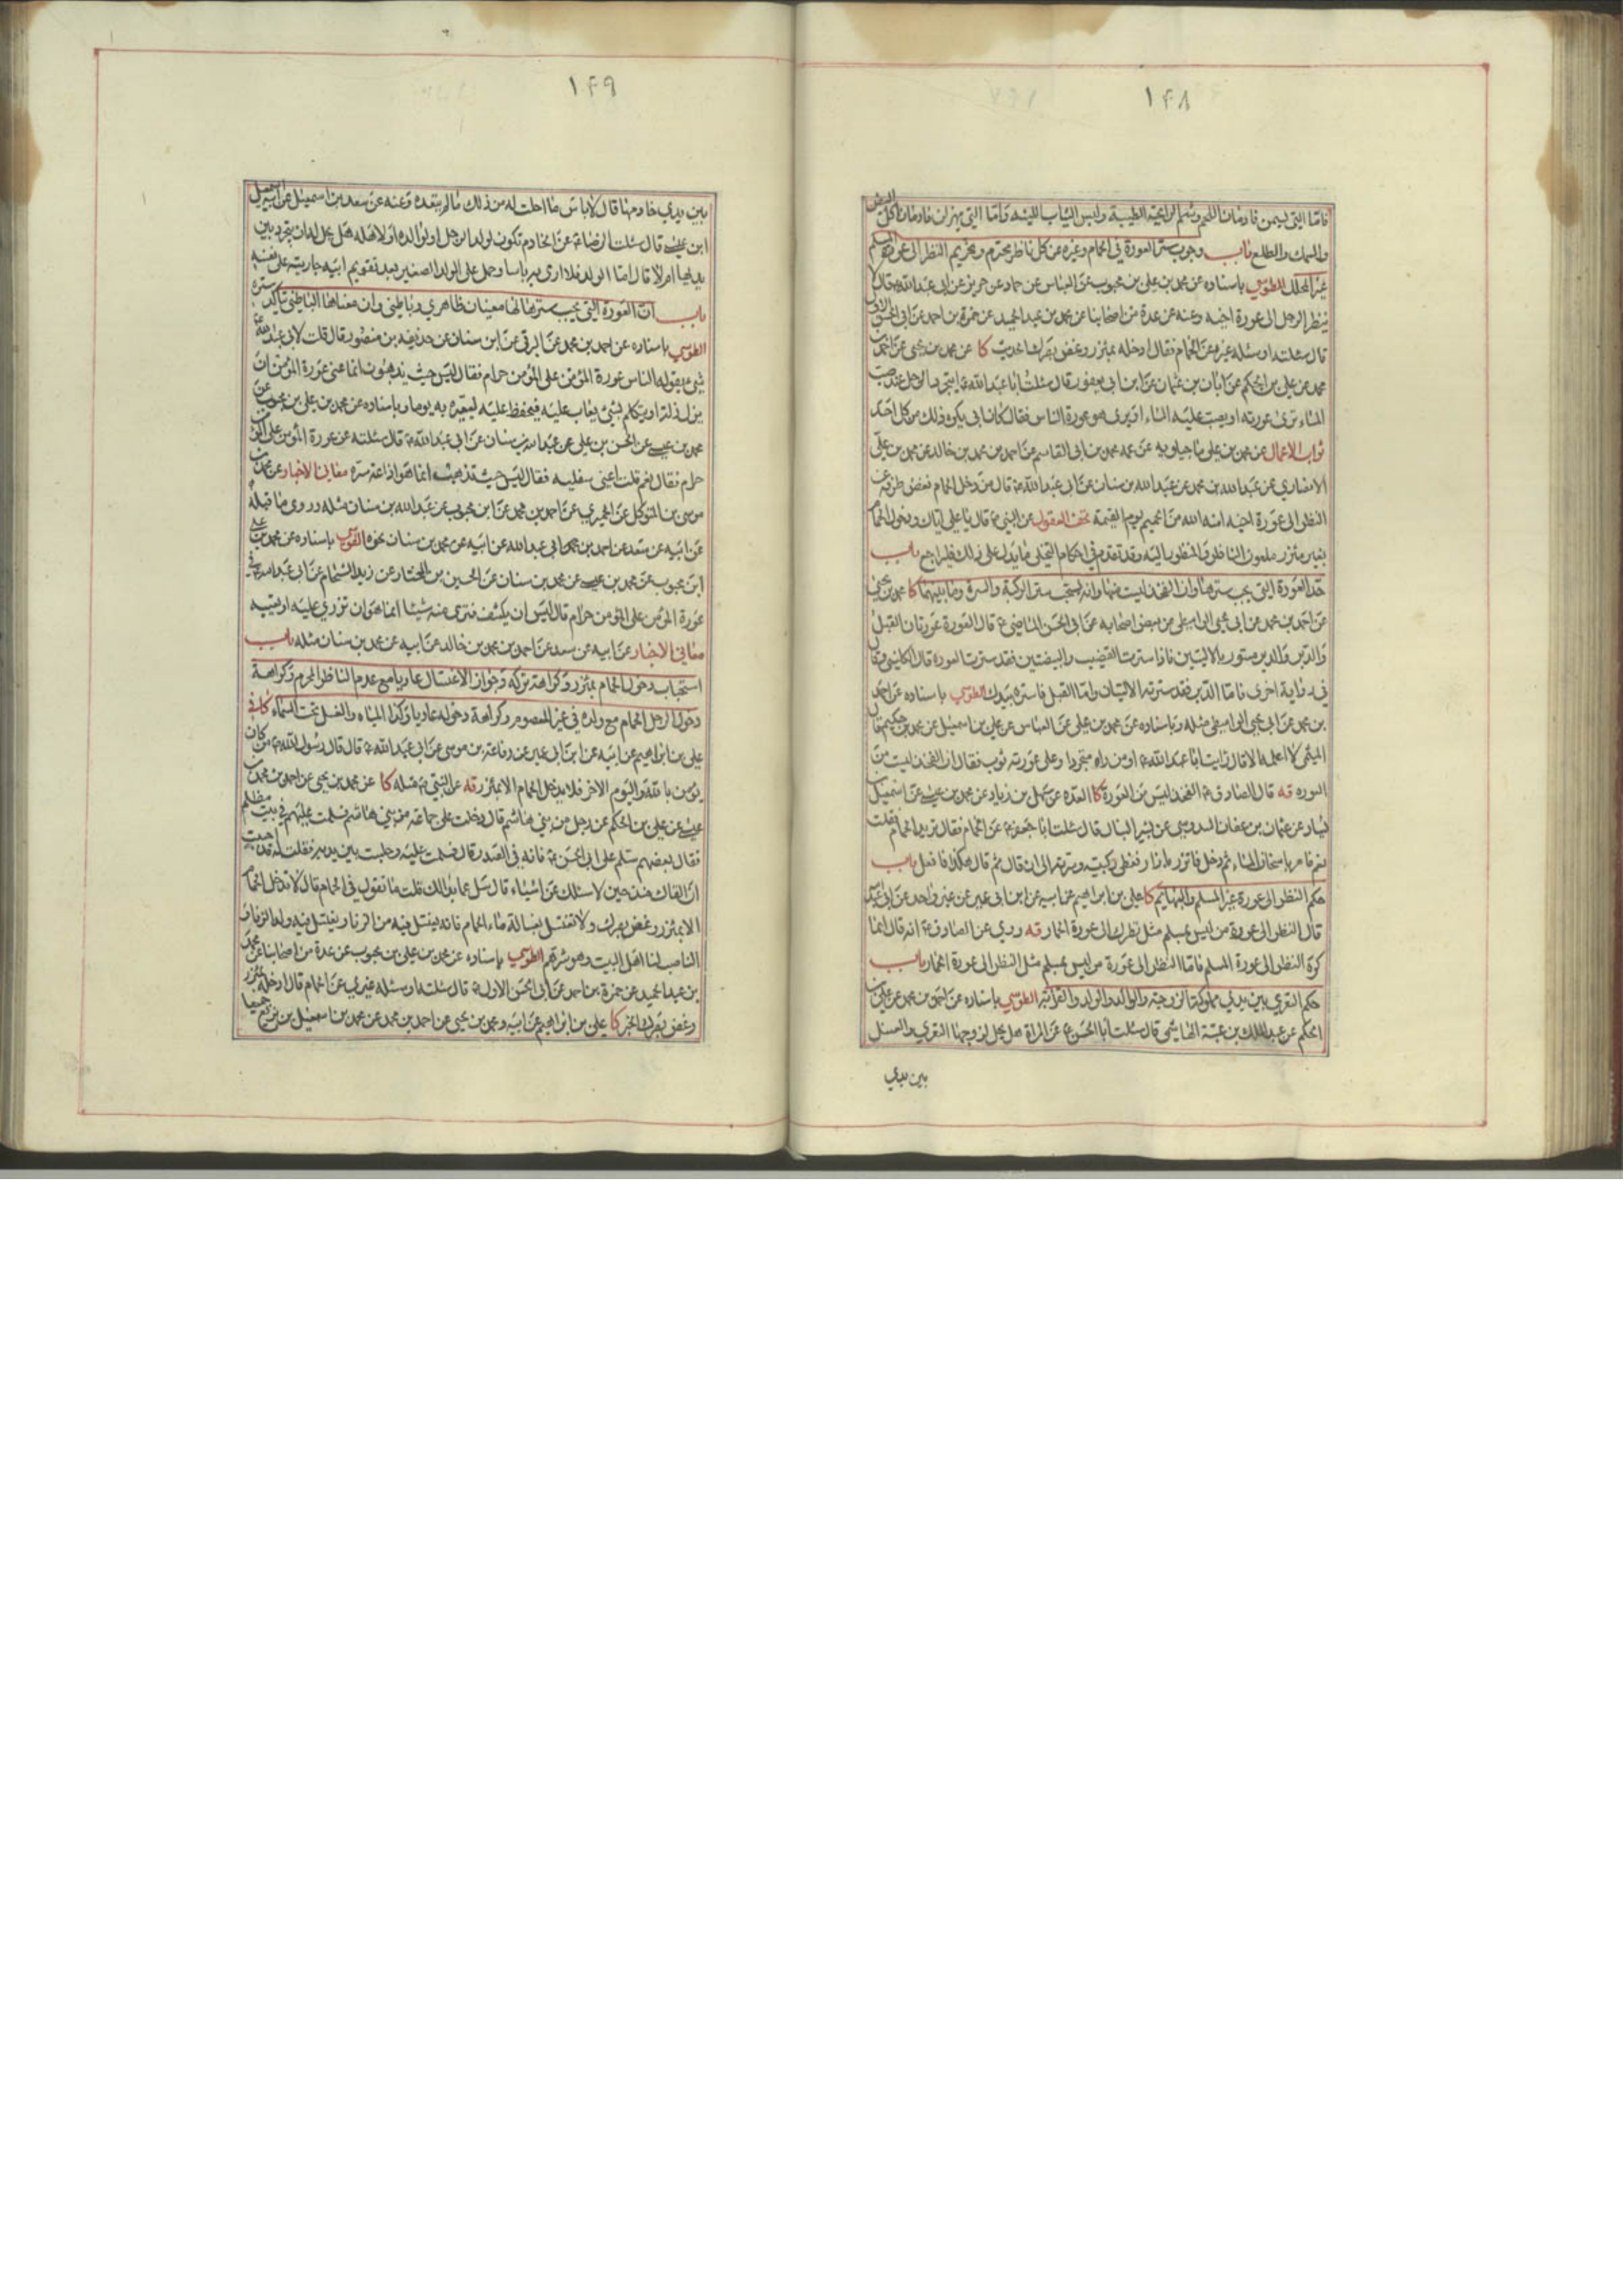 ١٤٨
فامّا التي يسمن فادمان اللحم وشم الرايحة الطيبة ولبس الثياب اللينة وامّا التي يهزلن فادمان اكل البيض
والسمك والطلع باب وجوب ستر العورة في الحمام وغيره عن كل ناظر محترم وتحريم النظر الى عورة المسلم
غير المحلل الطوسي باسناده عن محمد بن علي بن محبوب عن العباس عن حماد عن حريز عن ابي عبد الله قال لا
ينظر الرجل الى عورة اخيه وعنه عن عدة من اصحابنا عن محمد بن عبد الحميد عن حمزة بن احمد عن ابي الحسن الاول
قال سئلته او سئله غيره عن الحمام فقال ادخله بمئزر وغض بصرك الحديث كا عن محمد بن يحيى عن احمد بن
محمد عن علي بن الحكم عن ابان بن عثمان عن ابن ابي يعفور قال سئلت ابا عبد الله ع ايتجرد الرجل عند صب
الماء ترى عورته او يصب عليه الماء او يرى هو عورة الناس فقال كان ابي يكره ذلك من كل احد
ثواب الاعمال عن محمد بن علي ماجيلويه عن عمه محمد بن ابي القاسم عن احمد بن محمد بن خالد عن محمد بن علي
الانصاري عن عبد الله بن محمد عن عبد الله بن سنان عن ابي عبد الله ع قال من دخل الحمام فغض طرفه عن
النظر الى عورة اخيه امنه الله من الحميم يوم القيمة تحف العقول عن النبي ص قال يا علي اياك ودخول الحمام
بغير مئزر ملعون الناظر والمنظور اليه وقد تقدم في احكام التخلي ما يدل على ذلك فليراجع باب
حد العورة التي يجب سترها وان الفخذ ليست منها وانه يستحب ستر الركبة والسرة وما بينهما كا محمد بن يحيى
عن احمد بن محمد عن ابي يحيى الواسطي عن بعض اصحابه عن ابي الحسن الماضي ع قال العورة عورتان القبل
والدبر والدبر مستور بالاليتين فاذا سترت القضيب والبيضتين فقد سترت العورة قال الكليني وقال
في رواية اخرى فامّا الدبر فقد سترته الاليتان وامّا القبل فاستره بيدك الطوسي باسناده عن احمد
بن محمد عن ابي يحيى الواسطي مثله وباسناده عن محمد بن علي عن العباس عن علي بن اسمعيل عن محمد بن حكيم قال
الميثمي لا اعلمه الا قال رايت ابا عبد الله ع او من راه متجردا وعلى عورته ثوب فقال ان الفخذ ليست من
العوره قه قال الصادق ع الفخذ ليس من العورة كا العده عن سهل بن زياد عن محمد بن عيسى عن اسمعيل بن
يسار عن عثمان بن عفان السدوسي عن بشير النبال قال سئلت ابا جعفر ع عن الحمام فقال تريد الحمام فقلت
نعم فامر باسخان الماء ثم دخل فاتزر بازار فغطى ركبتيه وسرته الى ان قال ثم قال هكذا فافعل باب
حكم النظر الى عورة غير المسلم والبهايم كا علي بن ابراهيم عن ابيه عن ابن ابي عمير عن غير واحد عن ابي عبد الله
قال النظر الى عورة من ليس بمسلم مثل نظرك الى عورة الحمار قه وروي عن الصادق ع انه قال انما
كره النظر الى عورة المسلم فامّا النظر الى عورة من ليس بمسلم مثل النظر الى عورة الحمار باب
حكم التعري بين يدي مملوكة الزوجة والوالد والولد والقرابة الطوسي باسناده عن احمد بن محمد عن علي بن
الحكم عن عبد الملك بن عتبة الهاشمي قال سئلت ابا الحسن ع عن المراة هل يحل لزوجها التعري والغسل
بين يدي
١٤٩
بين يدي خادمها قال لا باس ما احلت له من ذلك ما لم يتعده وعنه عن سعد بن اسمعيل عن ابيه اسمعيل
ابن عيسى قال سئلت الرضا ع عن الخادم تكون لولد الرجل او لوالده او لاهله هل يحل له ان يتجرد بين
يديها ام لا قال امّا الولد فلا ارى به باسا وحمل على الولد الصغير بعد تقويم ابيه جاريته على نفسه
باب ان العورة التي يجب سترها لها معنيان ظاهري وباطني وان معناها الباطني تاكد ستره
الطوسي باسناده عن احمد بن محمد عن البرقي عن ابن سنان عن حذيفة بن منصور قال قلت لابي عبد الله ع
شيء يقوله الناس عورة المؤمن على المؤمن حرام فقال ليس حيث يذهبون انما عنى عورة المؤمن ان
يزل زلة او يتكلم بشيء يعاب عليه فيحفظ عليه ليعيره به يوما وباسناده عن محمد بن علي بن محبوب عن
محمد بن عيسى عن الحسن بن علي عن عبد الله بن سنان عن ابي عبد الله ع قال سئلته عن عورة المؤمن على المؤمن
حرام فقال نعم قلت اعني سفليه فقال ليس حيث تذهب انما هو اذاعة سره معاني الاخبار عن محمد بن
موسى بن المتوكل عن الحميري عن احمد بن محمد عن ابن محبوب عن عبد الله بن سنان مثله وروى ما قبله
عن ابيه عن سعد عن احمد بن ابي عبد الله عن ابيه عن محمد بن سنان نحوه الطوسي باسناده عن محمد بن علي
ابن محبوب عن محمد بن عيسى عن محمد بن سنان عن الحسين بن المختار عن زيد الشحام عن ابي عبد الله ع في
عورة المؤمن على المؤمن حرام قال ليس ان يكشف فترى منه شيئا انما هو ان تزري عليه او تعيبه
معاني الاخبار عن ابيه عن سعد عن احمد بن محمد بن خالد عن ابيه عن محمد بن سنان مثله باب
استحباب دخول الحمام بمئزر وكراهة تركه وجواز الاغتسال عاريا مع عدم الناظر المحرم وكراهة
دخول الرجل الحمام مع ولده في غير المعصوم وكراهة دخوله عاريا وكذا المياه والغسل تحت السماء كافي
علي بن ابراهيم عن ابيه عن ابن ابي عمير عن رفاعة بن موسى عن ابي عبد الله ع قال قال رسول الله ص من كان
يؤمن بالله واليوم الاخر فلا يدخل الحمام الا بمئزر قه عن النبي ص مثله كا عن محمد بن يحيى عن احمد بن محمد بن
عيسى عن علي بن الحكم عن رجل من بني هاشم قال دخلت على جماعة من بني هاشم فسلمت عليهم في بيت مظلم
فقال بعضهم سلم على ابي الحسن ع فانه في الصدر قال فسلمت عليه وجلست بين يديه فقلت له قد احببت
ان القاك منذ حين لاسئلك عن اشياء قال سل عما بدا لك قلت ما تقول في الحمام قال لا تدخل الحمام
الا بمئزر وغض بصرك ولا تغتسل بغسالة ماء الحمام فانه يغتسل فيه من الزنا ويغتسل فيه ولد الزنا و
الناصب لنا اهل البيت وهو شرهم الطوسي باسناده عن محمد بن علي بن محبوب عن عدة من اصحابنا عن محمد
بن عبد الحميد عن حمزة بن احمد عن ابي الحسن الاول ع قال سئلته او سئله غيري عن الحمام قال ادخله بمئزر
وغض بصرك الخبر كا علي بن ابراهيم عن ابيه ومحمد بن يحيى عن احمد بن محمد عن محمد بن اسمعيل بن بزيع جميعا